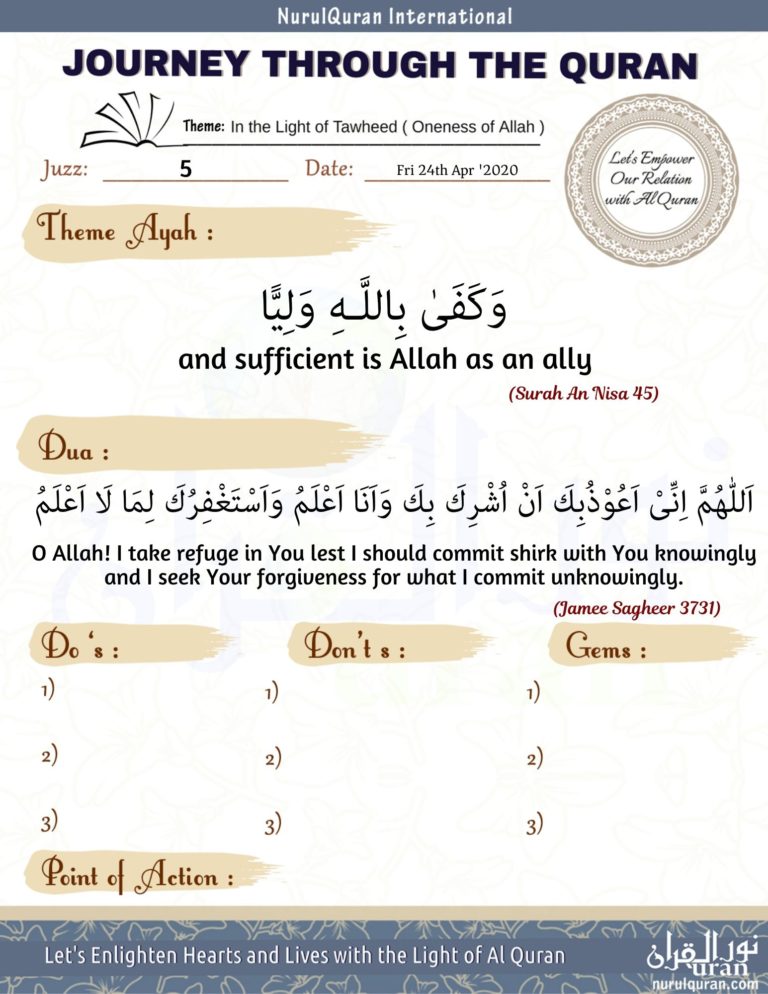 NurulQuran International
JOURNEY THROUGH THE QURAN
Theme: In the Light of Tawheed ( Oneness of Allah )
Juzz: 5 Date: Fri 24th Apr '2020
Let's Empower
Our Relation
with Al Quran
Theme Ayah :
وَكَفَىٰ بِاللَّـهِ وَلِيًّا
and sufficient is Allah as an ally
(Surah An Nisa 45)
Dua :
اَللّٰهُمَّ اِنِّىْ اَعُوْذُبِكَ اَنْ اُشْرِكَ بِكَ وَاَنَا اَعْلَمُ وَاَسْتَغْفِرُكَ لِمَا لَا اَعْلَمُ
O Allah! I take refuge in You lest I should commit shirk with You knowingly
and I seek Your forgiveness for what I commit unknowingly.
(Jamee Sagheer 3731)
Do 's : Don't s : Gems :
1) 1) 1)
2) 2) 2)
3) 3) 3)
Point of Action :
Let's Enlighten Hearts and Lives with the Light of Al Quran
نور القرآن
uran
nurulquran.com